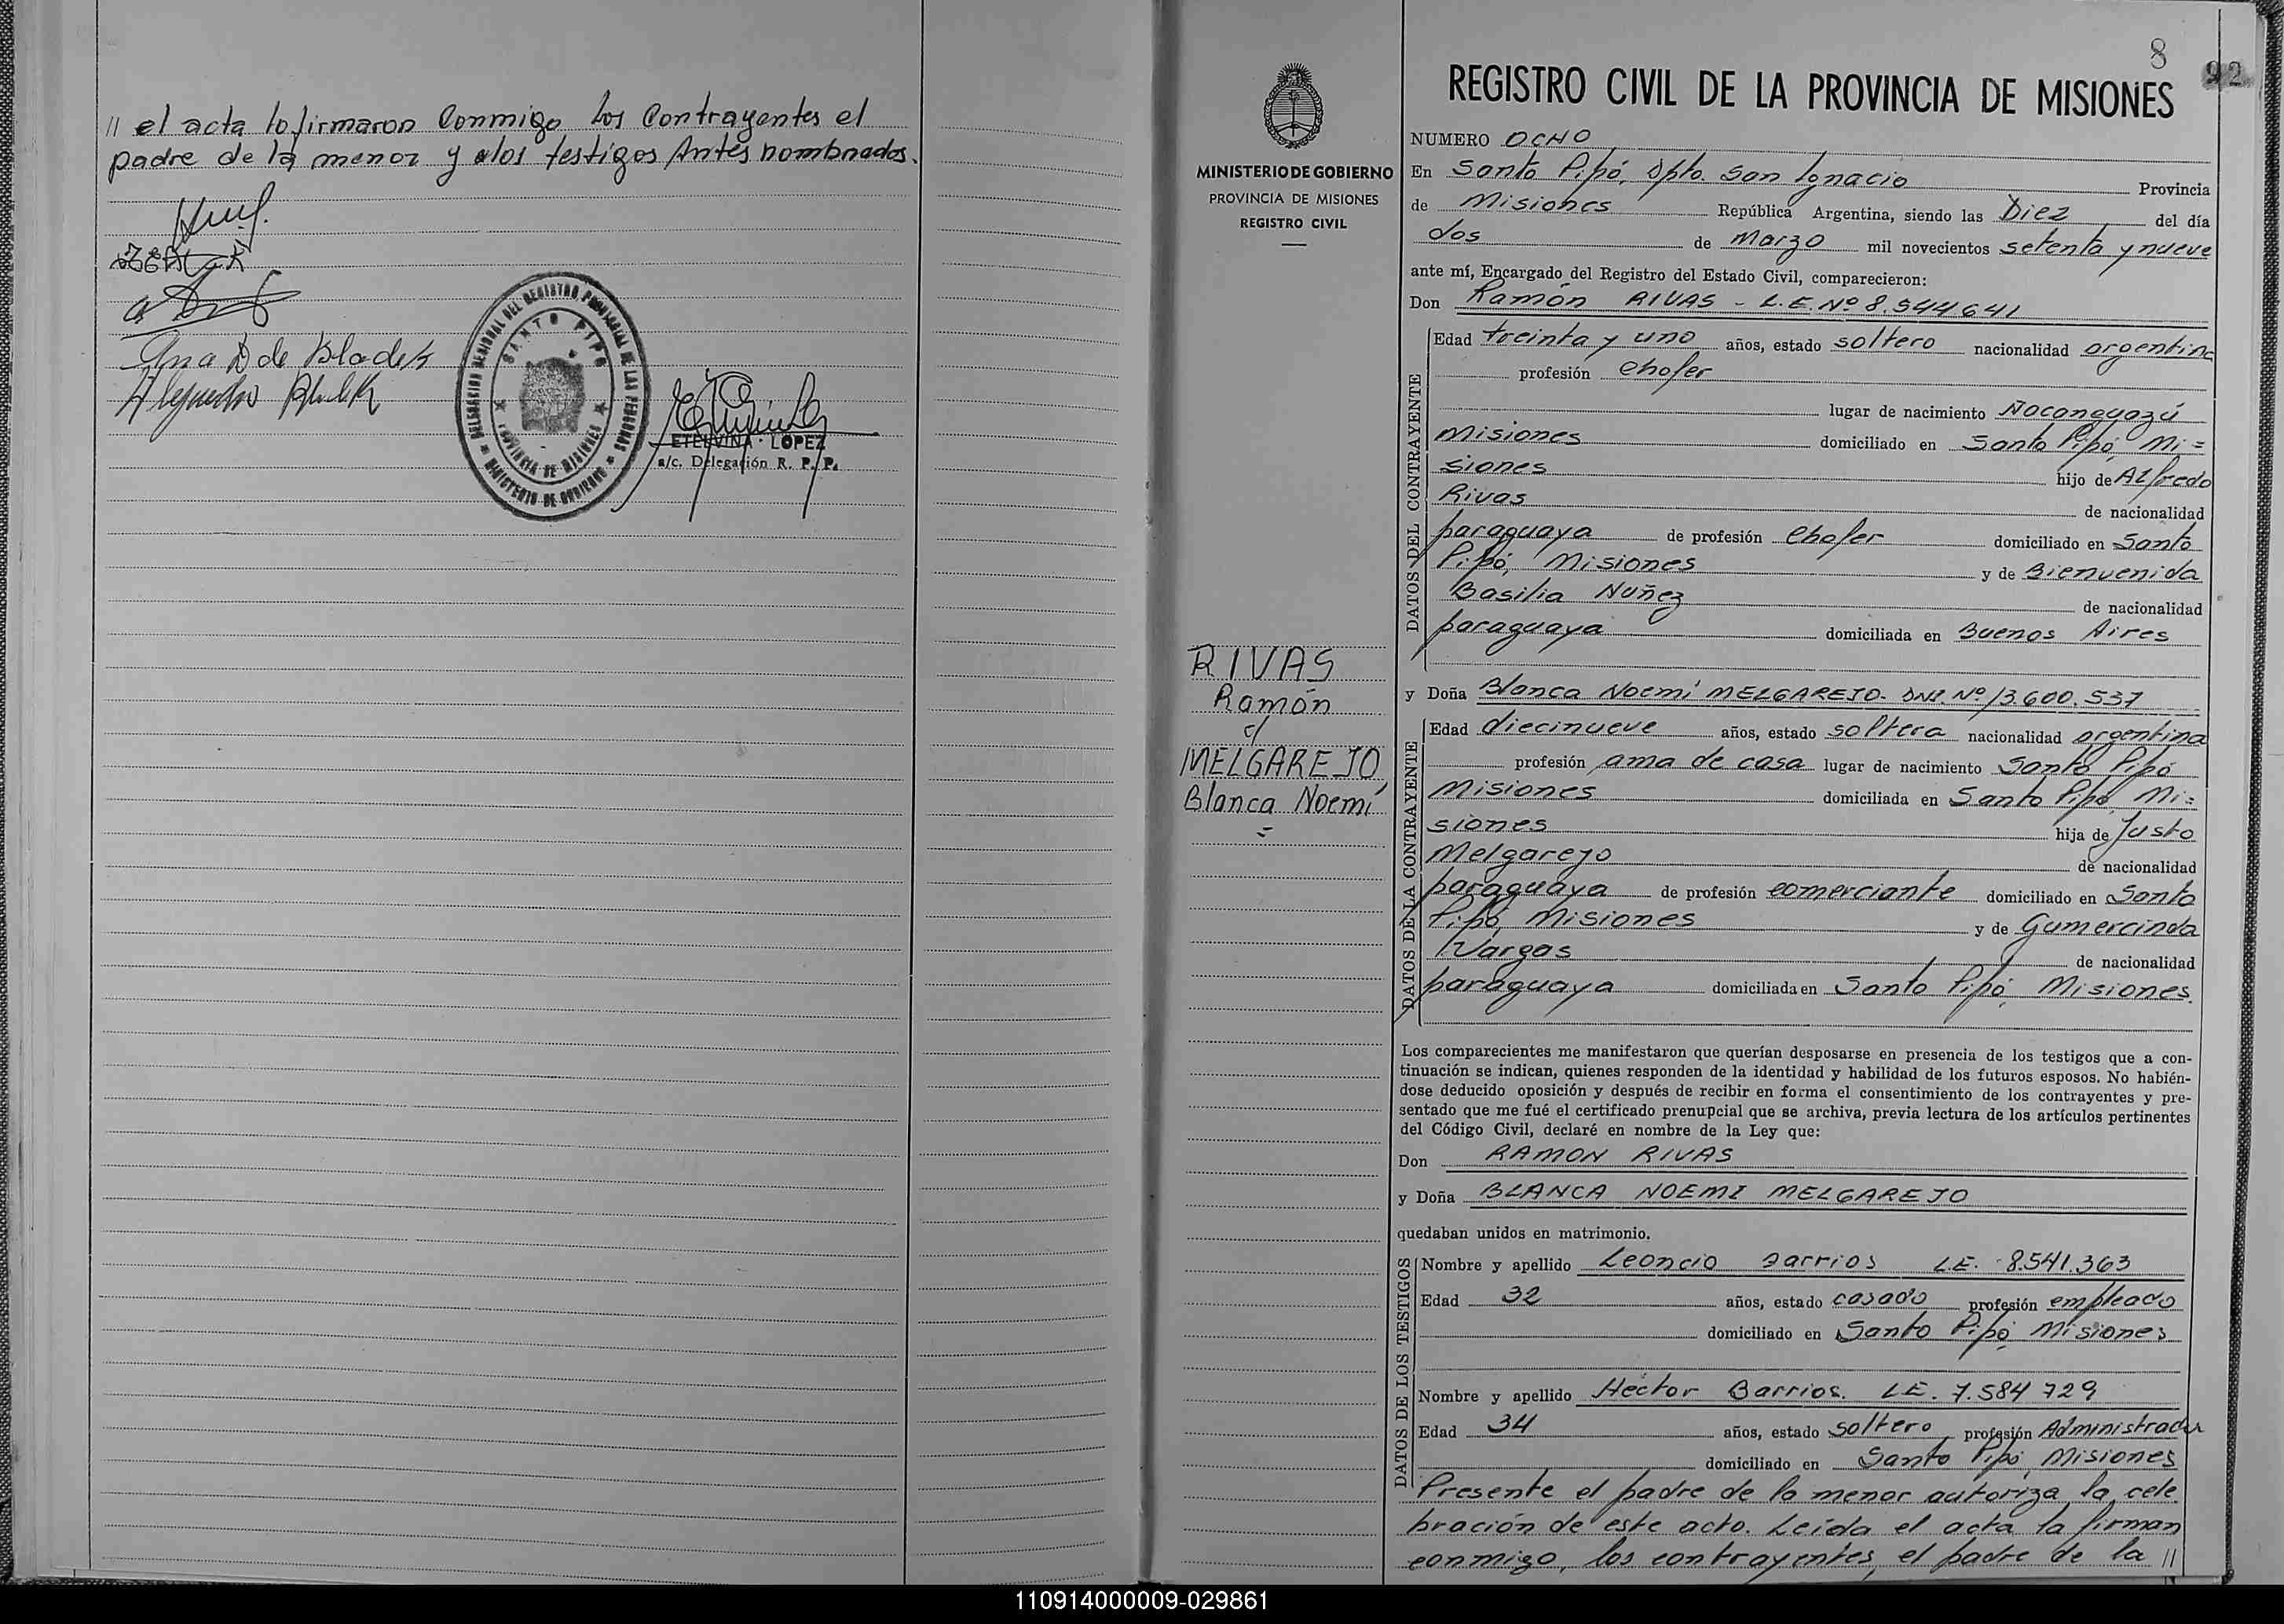 // el acta lo firmaron Conmigo los Contrayentes el
padre de la menor y a los testigos Antes nombrados.
Ana D de Bladek
ETELVINA LOPEZ
a/c. Delegación R. P. P.
DELEGACION SECCIONAL DEL REGISTRO PROVINCIAL DE LAS PERSONAS
MINISTERIO DE GOBIERNO
SANTO PIPO
PROVINCIA DE MISIONES
8
92
REGISTRO CIVIL DE LA PROVINCIA DE MISIONES
MINISTERIO DE GOBIERNO
PROVINCIA DE MISIONES
REGISTRO CIVIL
RIVAS
Ramón
c/
MELGAREJO
Blanca Noemí
=
NUMERO OCHO
En Santo Pipó, Dpto. San Ignacio Provincia
de Misiones República Argentina, siendo las Diez del día
dos de Marzo mil novecientos setenta y nueve
ante mí, Encargado del Registro del Estado Civil, comparecieron:
Don Ramón RIVAS - L.E. Nº 8.544641
DATOS DEL CONTRAYENTE
Edad treinta y uno años, estado soltero nacionalidad argentina
profesión chofer
lugar de nacimiento Ñacanguazú
Misiones domiciliado en Santo Pipó Mi=
siones hijo de Alfredo
Rivas de nacionalidad
paraguaya de profesión Chofer domiciliado en Santo
Pipó, Misiones y de Bienvenida
Basilia Nuñez de nacionalidad
paraguaya domiciliada en Buenos Aires
y Doña Blanca Noemí MELGAREJO. DNI. Nº 13.600.537
DATOS DE LA CONTRAYENTE
Edad diecinueve años, estado soltera nacionalidad argentina
profesión ama de casa lugar de nacimiento Santo Pipó
Misiones domiciliada en Santo Pipó Mi=
siones hija de Justo
Melgarejo de nacionalidad
paraguaya de profesión comerciante domiciliado en Santo
Pipó, Misiones y de Gumercinda
Vargas de nacionalidad
paraguaya domiciliada en Santo Pipó Misiones.
Los comparecientes me manifestaron que querían desposarse en presencia de los testigos que a con-
tinuación se indican, quienes responden de la identidad y habilidad de los futuros esposos. No habién-
dose deducido oposición y después de recibir en forma el consentimiento de los contrayentes y pre-
sentado que me fué el certificado prenupcial que se archiva, previa lectura de los artículos pertinentes
del Código Civil, declaré en nombre de la Ley que:
Don RAMON RIVAS
y Doña BLANCA NOEMI MELGAREJO
quedaban unidos en matrimonio.
DATOS DE LOS TESTIGOS
Nombre y apellido Leoncio Barrios L.E. 8.541.363
Edad 32 años, estado casado profesión empleado
domiciliado en Santo Pipó Misiones
Nombre y apellido Hector Barrios. L.E. 7.584 729
Edad 34 años, estado soltero profesión Administrador
domiciliado en Santo Pipó, Misiones
Presente el padre de la menor autoriza la cele
bración de este acto. Leída el acta la firman
conmigo, los contrayentes, el padre de la //
110914000009-029861